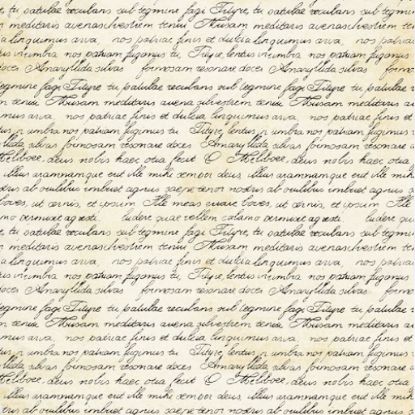 tu patulae recubans sub tegmine fagi Tityre, tu patulae recubans sub
meditaris avena silvestrem tenui Musam meditaris avena silvestrem
linquimus arva nos patriae finis et dulcia linquimus arva
in umbra nos patriam fugimus tu, Tityre, lentus in umbra nos
doces Amaryllida silvas formosam resonare doces Amaryllida silvas
tegmine fagi Tityre tu patulae recubans sub tegmine fagi Tityre, tu
tenui Musam meditaris avena silvestrem tenui Musam meditaris avena
linquimus arva nos patriae finis et dulcia linquimus arva
lentus in umbra nos patriam fugimus tu Tityre, lentus in umbra nos patriam
silvas formosam resonare doces Amaryllida silvas formosam
Meliboee, deus nobis haec otia fecit O Meliboee, deus nobis haec
illius aram namque erit ille mihi semper deus illius aram namque erit ille mihi
nostris ab ovilibus imbuet agnus saepe tener nostris ab ovilibus imbuet agnus
boves, ut cernis, et ipsum Ille meas errare boves, ut cernis, et ipsum
calamo permisit agresti ludere quae vellem calamo permisit agresti
tu patulae recubans sub tegmine fagi Tityre, tu patulae recubans sub
meditaris avena silvestrem tenui Musam meditaris avena silvestrem
linquimus arva nos patriae finis et dulcia linquimus arva
lentus in umbra nos patriam fugimus tu Tityre, lentus in umbra nos
Amaryllida silvas formosam resonare doces Amaryllida silvas
tegmine fagi Tityre tu patulae recubans sub tegmine fagi Tityre, tu
tenui Musam meditaris avena silvestrem tenui Musam meditaris avena
linquimus arva nos patriae finis et dulcia linquimus arva
lentus in umbra nos patriam fugimus tu Tityre, lentus in umbra nos patriam
silvas formosam resonare doces Amaryllida silvas formosam
Meliboee, deus nobis haec otia fecit O Meliboee, deus nobis haec
illius aram namque erit ille mihi semper deus illius aram namque erit ille mihi
nostris ab ovilibus imbuet agnus saepe tener nostris ab ovilibus imbuet agnus